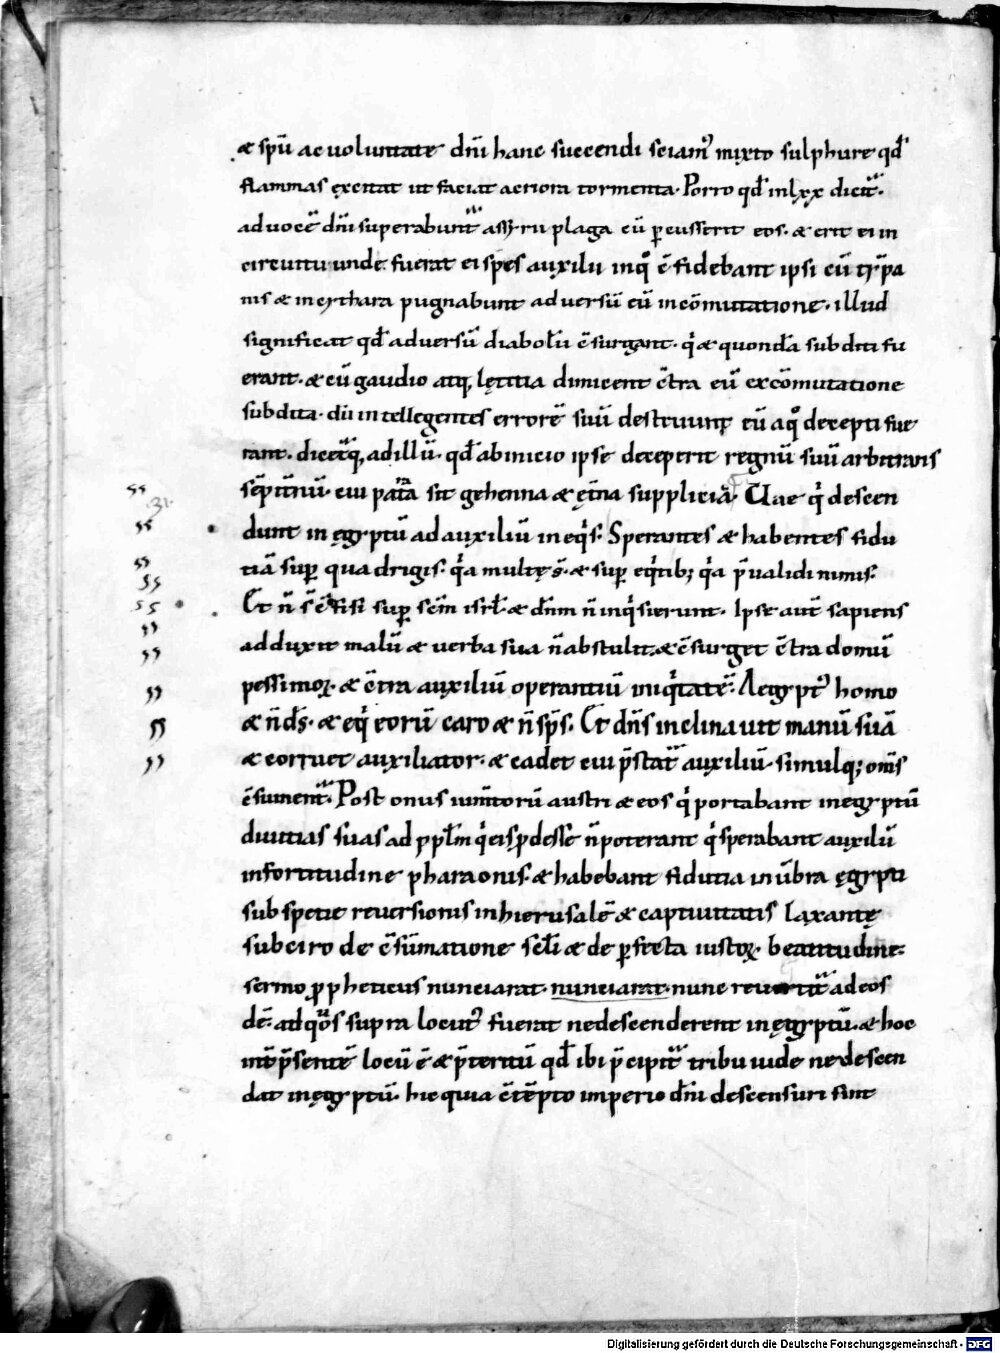 & spū ac voluntate dn̄i hanc succendi sciam᾽ mixto sulphure qđ
flammas ęxcitat ut faciat acriora tormenta. Porro qđ in lxx dicit᷑.
ad vocē dn̄i superabunt᷑ assyrii plaga cū ꝑcusserit eos. & erit ei in
circuitu unde fuerat ei spes auxilii in quo ē fidebant ipsi cū tȳpa
nis & in cythara pugnabunt adversū eū in cōmutatione. illud
significat qđ adversū diabolū c̄surgant. qi & quondā subditi fu
erant. & cū gaudio atq; lętitia dimicent c̄tra eū ex cōmutatione
subdita. dū intellegentes errorē suū destruunt eū a quo decepti fue
rant. dicetq; ad illū. qđ ab inicio ipse deceperit regnū suū arbitrans
sēpit̄nū. cui parata sit gehenna & ęt̄na supplicia. Uae qi descen
dunt in ęgyptū ad auxiliū in eqis. Sperantes & habentes fidu
tiā suꝑ quadrigis. qa multę s̄. & suꝑ eqitib; qa p̄validi nimis.
Et n̄ s̄ c̄fisi suꝑ sc̄m isrł. & dn̄m n̄ inqisierunt. Ipse aut̄ sapiens
adduxit malū & verba sua n̄ abstulit. & c̄surget c̄tra domū
pessimoꝝ. & c̄tra auxiliū operantiū iniqitatē. Aegypt᾽ homo
& n̄ ds̄. & eqi eorū caro & n̄ sps̄. Et dn̄s inclinavit manū suā
& corruet auxiliator. & cadet cui p̄stat᷑ auxiliū. simulq; om̄s
c̄sument᷑. Post onus ium̄torū austri & eos qi portabant in egyptū
divitias suas ad ppl̄m qi eis ꝓdesse n̄ poterant qi sperabant auxiliū
in fortitudine pharaonis. & habebant fidutia in ūbra ęgypti
sub spetie reversionis in hierusalē & captivitatis laxantę
sub ciro de c̄sūmatione scłi & de ꝑfecta iustoꝝ beatitudine.
sermo ꝓpheticus nunciarat. nunciarat. nunc revertit᷑ ad eos
dē. ad quos supra locut᾽ fuerat ne descenderent in ęgyptū. & hoc
int̄ p̄sentē locū ē & p̄teritū qđ ibi p̄cipit᷑ tribu iude ne descen
dat in ęgyptū. hic quia c̄tēpto imperio dn̄i descensuri sint
31.
Digitalisierung gefördert durch die Deutsche Forschungsgemeinschaft - DFG